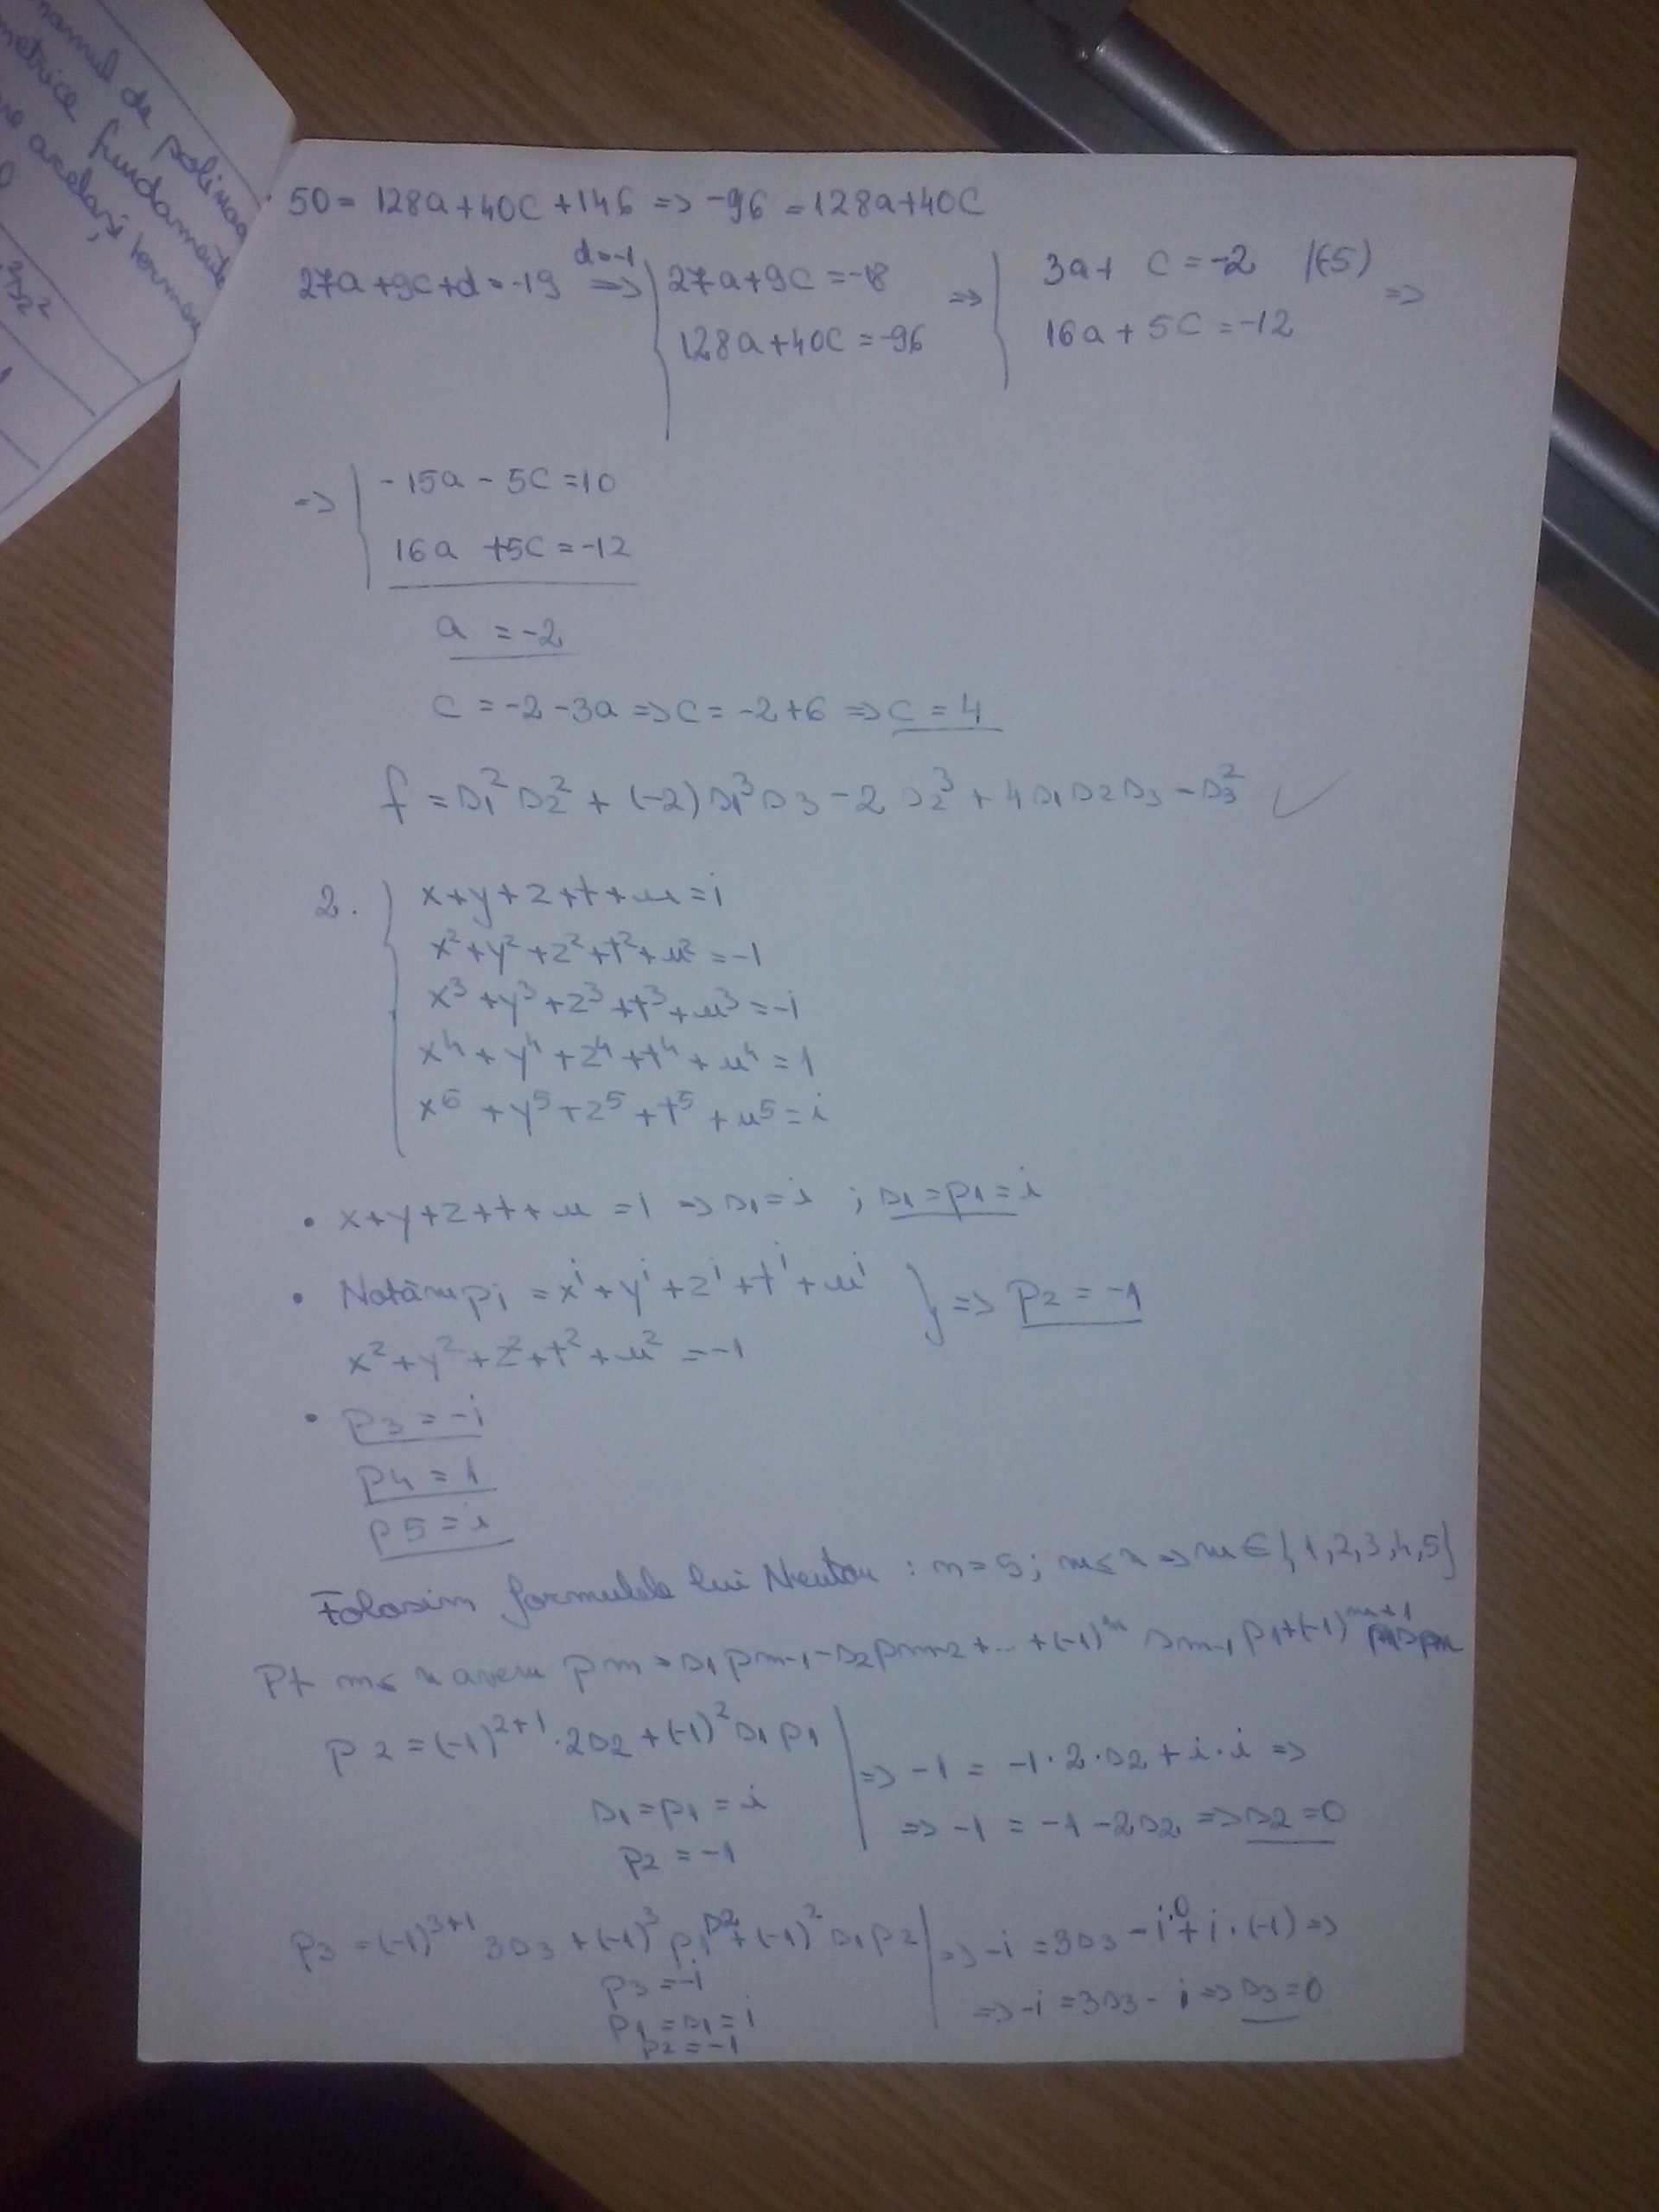 namul de polinoa
metrice fundamente
are același termen
50 = 128a+40C+146 => -96 = 128a+40C
27a+9C+d=-19 d=-1 => { 27a+9C=-18 => { 3a+ C=-2 |(-5) =>
128a+40C=-96 16a+5C=-12
=> { -15a-5C=10
16a +5C=-12
a = -2
C = -2-3a => C = -2+6 => C = 4
f = s₁²s₂² + (-2)s₁³s₃ - 2s₂³ + 4s₁s₂s₃ - s₃² ✓
2. { x+y+z+t+u=i
x²+y²+z²+t²+u²=-1
x³+y³+z³+t³+u³=-i
x⁴+y⁴+z⁴+t⁴+u⁴=1
x⁵+y⁵+z⁵+t⁵+u⁵=i
• x+y+z+t+u=1 => s₁=i ; s₁=p₁=i
• Notăm pi = xⁱ+yⁱ+zⁱ+tⁱ+uⁱ } => p₂=-1
x²+y²+z²+t²+u²=-1
• p₃=-i
p₄=1
p₅=i
Folosim formulele lui Newton : n=5; m≤n => m∈{1,2,3,4,5}
Pt m≤n avem pm = s₁pm-1 - s₂pm-2 + ... + (-1)ᵐ sm-1 p₁ + (-1)ᵐ⁺¹
p₂ = (-1)²⁺¹·2s₂ + (-1)²s₁p₁ | => -1 = -1·2·s₂ + i·i =>
s₁=p₁=i => -1 = -1-2s₂ => s₂=0
p₂=-1
p₃ = (-1)³⁺¹ 3s₃ + (-1)³ p₁s₂ + (-1)² s₁p₂ | => -i = 3s₃ - i·0 + i·(-1) =>
p₃=-i => -i = 3s₃ - i => s₃=0
p₁=s₁=i
p₂=-1